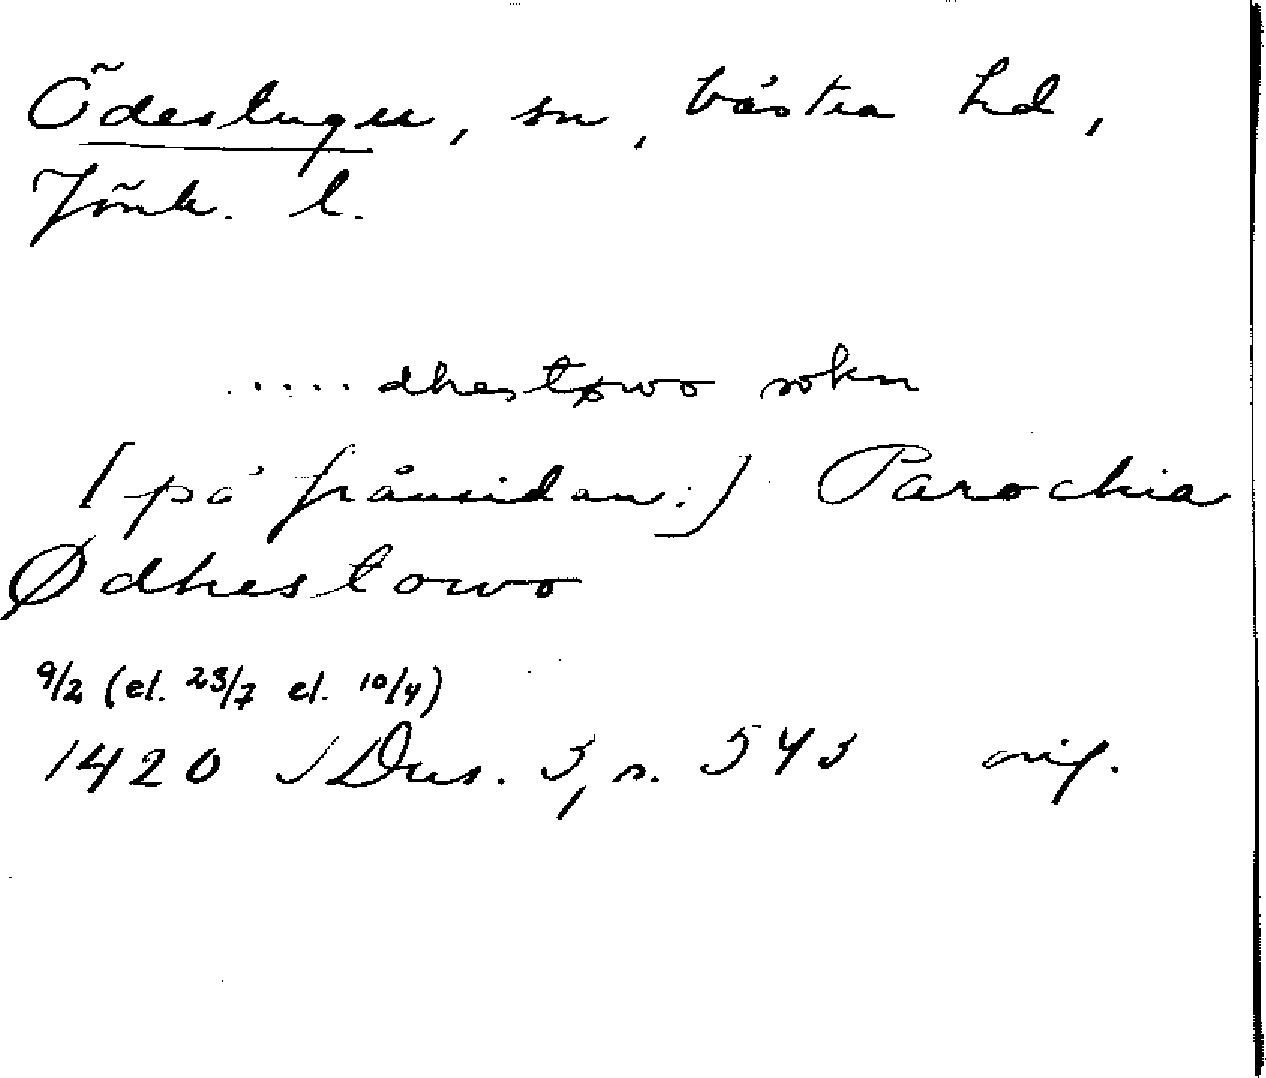 Ödestugu, sn, Västra hd,
Jönk. l.
..... dhestøwo sokn
[på frånsidan:] Parochia
Ødhestowo
9/2 (el. 23/7 el. 10/4)
1420 SDns. 3, s. 543 orig.